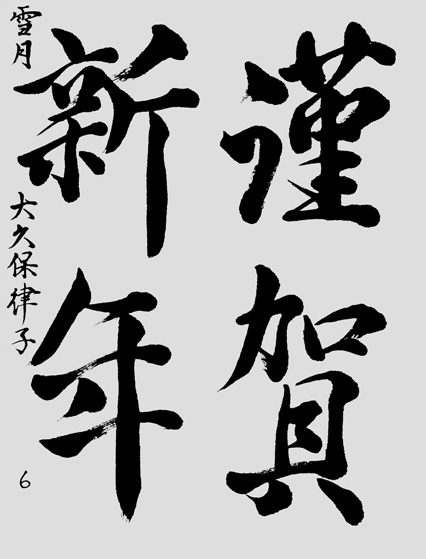 謹賀
新年
雪月
大久保律子
6